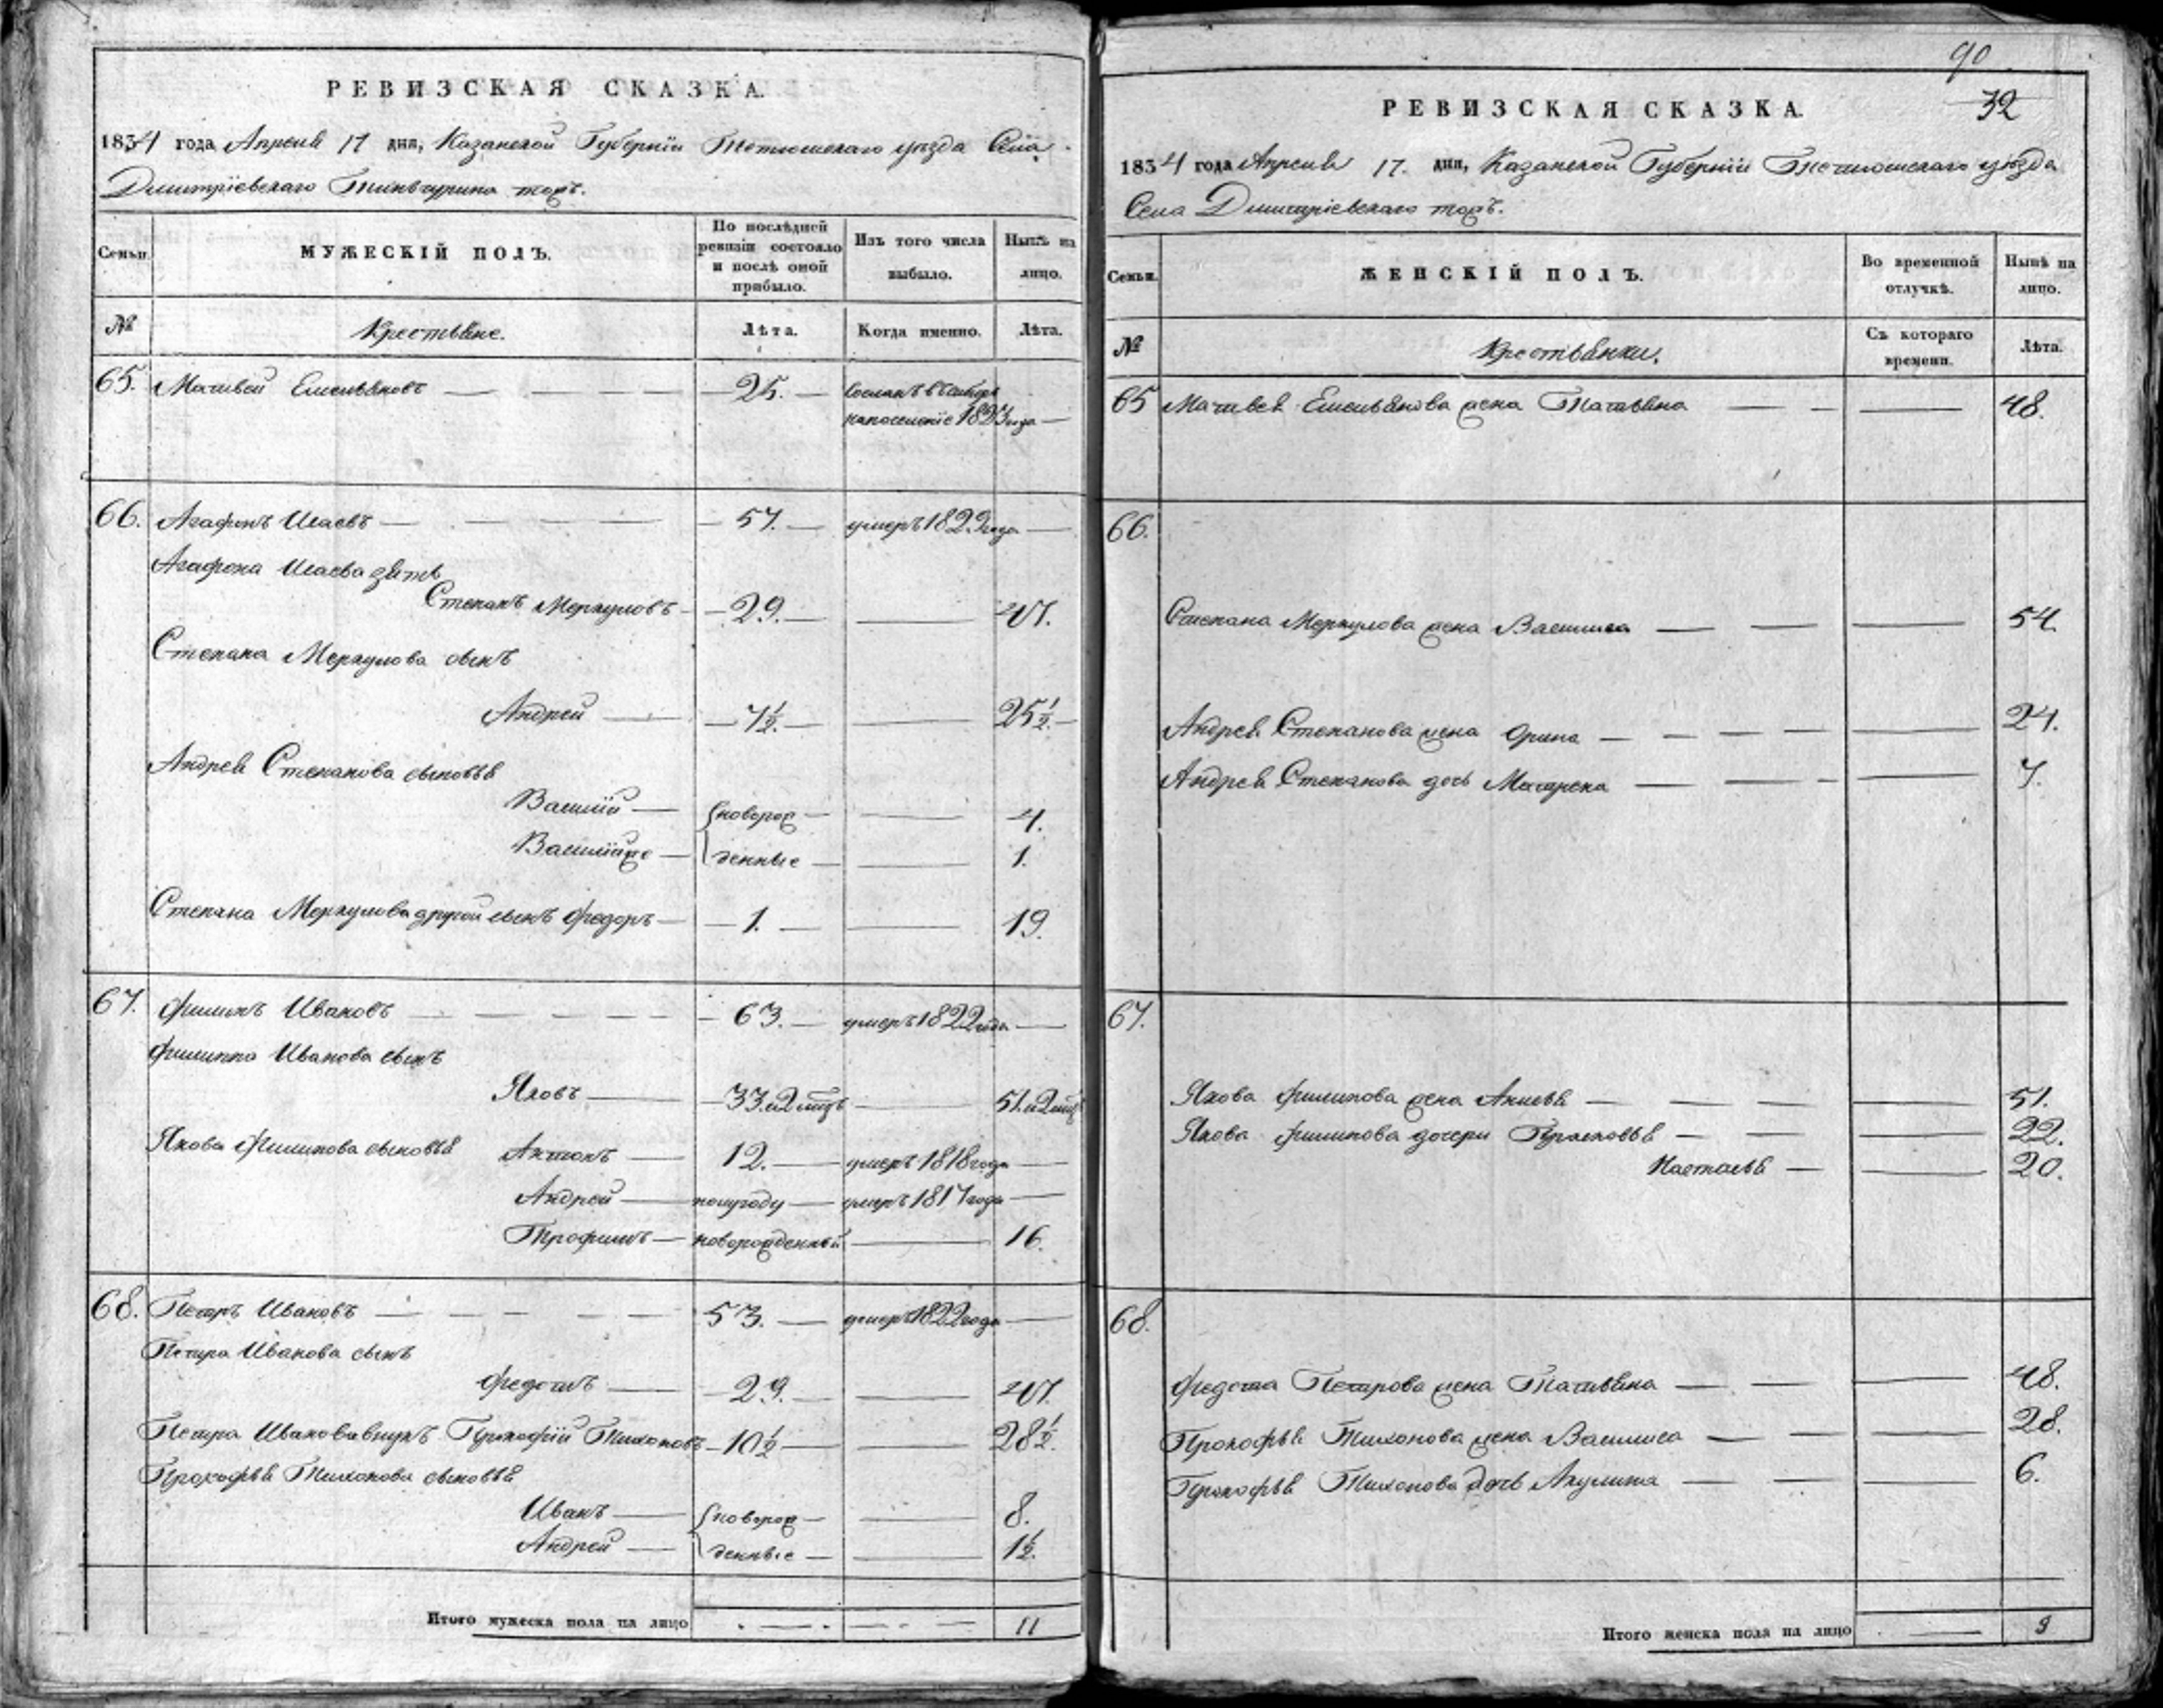 РЕВИЗСКАЯ СКАЗКА.
1834 года Апреля 17 дня, Казанской Губернїи Тетюшскаго уѣзда Села
Димитрїевскаго тожъ.
Семьи. МУЖЕСКІЙ ПОЛЪ. По послѣдней ревизіи состояло и послѣ оной прибыло. Изъ того числа выбыло. Нынѣ на лицо.
№ Крестьяне. Лѣта. Когда именно. Лѣта.
65. Матвей Емельяновъ — 25. — сосланъ в сибирь
напоселенїе 1823 года —
66. Агафонъ Исаевъ — 57. — умеръ 1829 года —
Агафона Исаева зять
Степанъ Меркуловъ — 29. — 47.
Степана Меркулова сынъ
Андрей — 7½. — 25½. —
Андрея Степанова сыновья
Василїй — новорож — 4.
Василїйже — денные — 1.
Степана Меркулова другой сынъ Федоръ — 1. — 19.
67. Филипъ Ивановъ — 63. — умеръ 1822 года —
Филиппа Иванова сынъ
Яковъ — 33. и 2 мцъ — 51. и 2 мцъ
Якова Филипова сыновья Антонъ — 12. — умеръ 1818 года —
Андрей — полугоду — умеръ 1817 года —
Трофимъ — новорожденный — 16.
68. Петръ Ивановъ — 53. — умеръ 1822 года —
Петра Иванова сынъ
Федотъ — 29. — 47.
Петра Иванова внукъ Прокофїй Тихоновъ — 10½ — 28½.
Прокофья Тихонова сыновья
Иванъ — новорож — 8.
Андрей — денные — 1½.
Итого мужеска пола на лицо 11
90
32
РЕВИЗСКАЯ СКАЗКА.
1834 года Апреля 17. дня, Казанской Губернїи Тетюшскаго уѣзда
Села Димитрїевскаго тожъ.
Семьи. ЖЕНСКІЙ ПОЛЪ. Во временной отлучкѣ. Нынѣ на лицо.
№ Крестьянки. Съ котораго времени. Лѣта.
65 Матвея Емельянова жена Татьяна — 48.
66.
Степана Меркулова жена Василиса — 54.
Андрея Степанова жена Орина — 24.
Андрея Степанова дочь Матрена — 7.
67.
Якова Филипова жена Анисья — 51.
Якова Филипова дочери Прасковья — 22.
Настасья — 20.
68.
Федота Петрова жена Татьяна — 48.
Прокофья Тихонова жена Василиса — 28.
Прокофья Тихонова дочь Акулина — 6.
Итого женска пола на лицо — 9